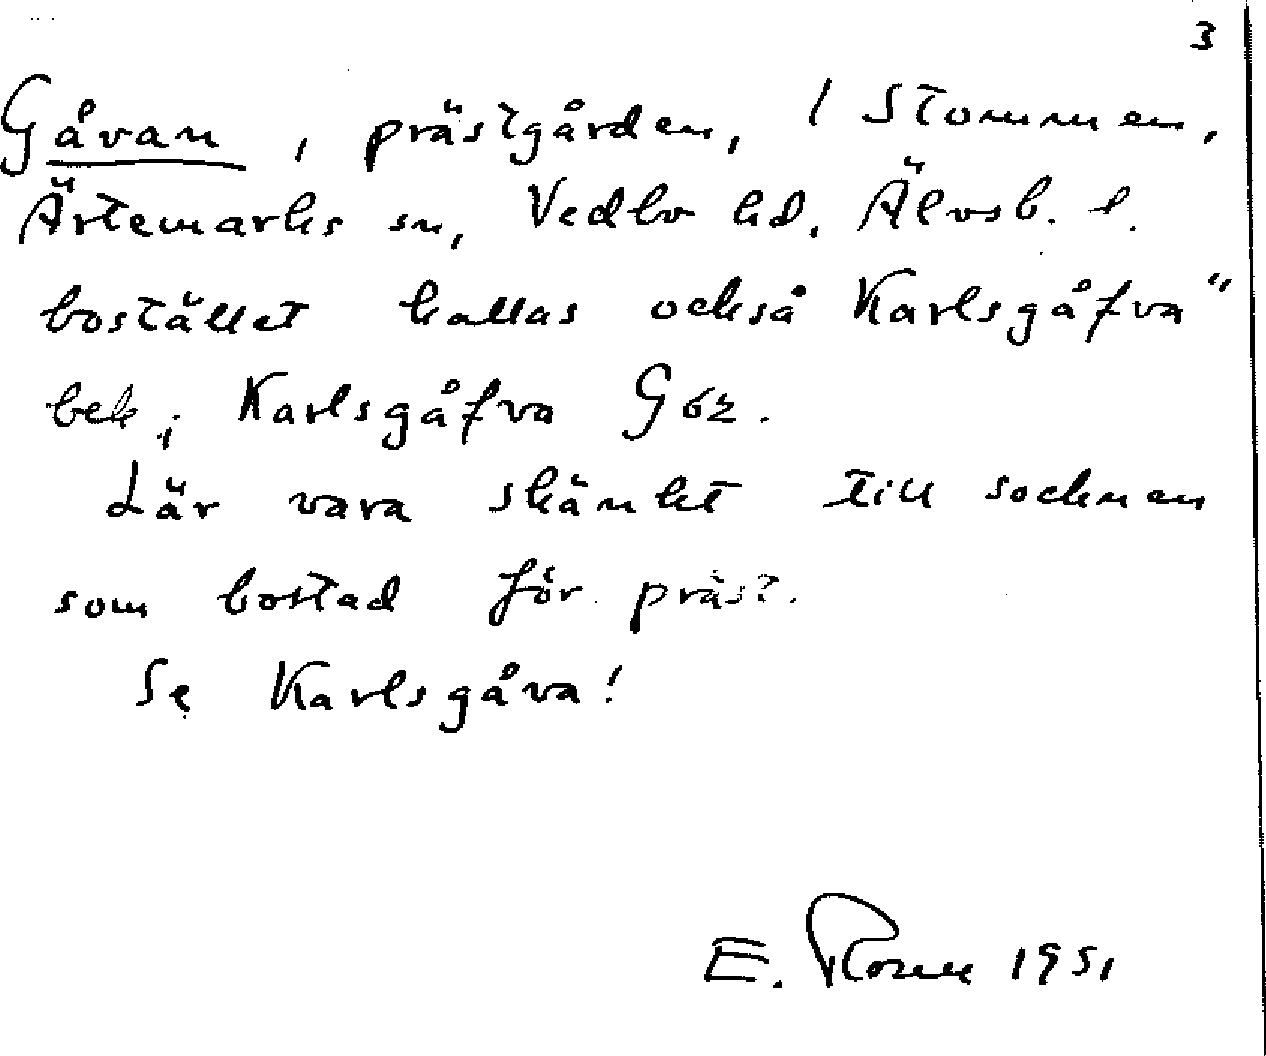 3
Gåvan, prästgården, 1 Stommen,
Ärtemarks sn, Vedbo hd. Älvsb. l.
bostället kallas också Karlsgåfva"
bek; Karlsgåfva G62.
Lär vara skänkt till socknen
som bostad för präst.
Se Karlsgåva!
E. 1951